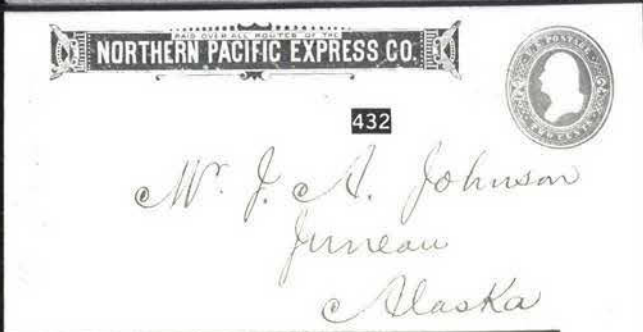 PAID OVER ALL ROUTES OF THE
NORTHERN PACIFIC EXPRESS CO.
U.S. POSTAGE
TWO CENTS
432
Mr. J. A. Johnson
Juneau
Alaska